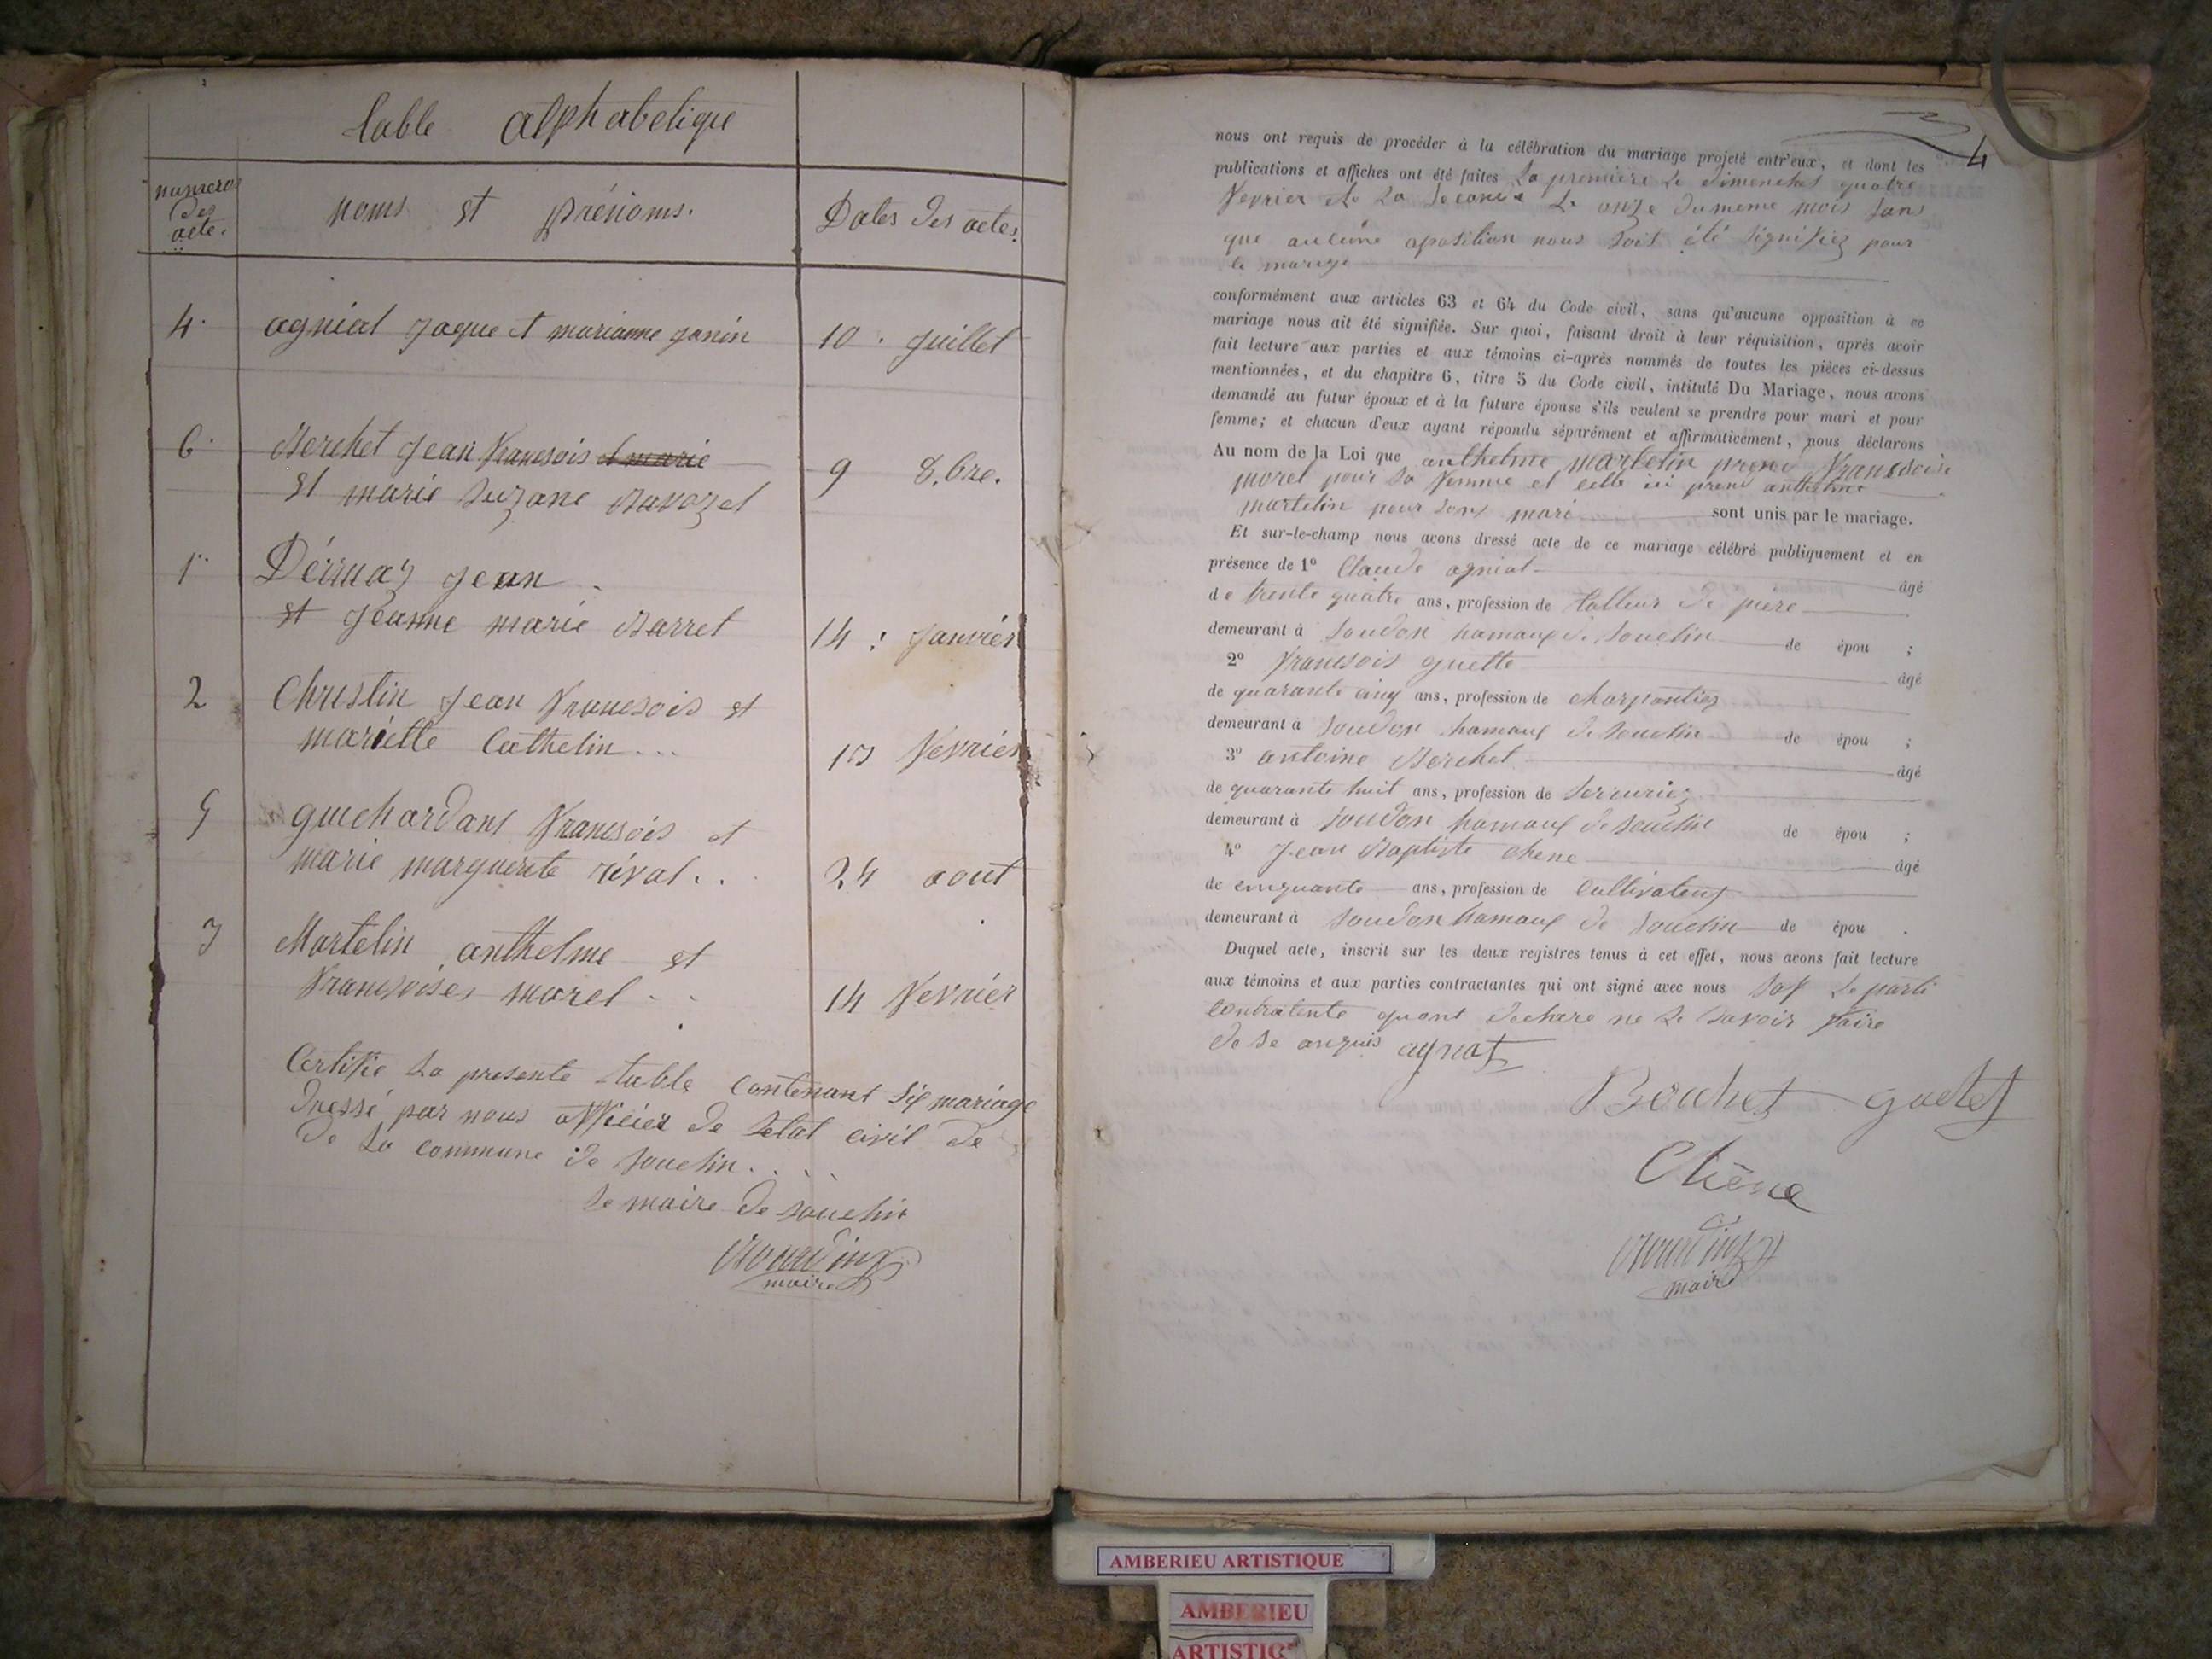 table alphabetique
numero des acte.
noms et prénoms.
Dates des actes.
4. agniat jaque et marianne janin 10. juillet
6. Berchet jean francsois et marie
et marie suzane Ravozet 9 8.bre.
1. Dérmaz jean
et jeanne marie Barret 14: janvier
2 Christin jean francsois et
mariette Cathelin... 13 fevrier
5 guichardant francsois et
marie marguerite réval.. 24 aout
3 Martelin anthelme et
francsoises morel.. 14 fevrier
Certifie la presente table Contenant Six mariage
dressé par nous officier de letat civil de
de la commune de souclin....
Le maire de souclin
maire
4
nous ont requis de procéder à la célébration du mariage projeté entr'eux, et dont les
publications et affiches ont été faites La premiere Le dimenches quatre
fevrier et La Seconde Le onze dumeme mois sans
que aucune aposition nous soit été signifiez pour
le mariage
conformément aux articles 63 et 64 du Code civil, sans qu'aucune opposition à ce
mariage nous ait été signifiée. Sur quoi, faisant droit à leur réquisition, après avoir
fait lecture aux parties et aux témoins ci-après nommés de toutes les pièces ci-dessus
mentionnées, et du chapitre 6, titre 5 du Code civil, intitulé Du Mariage, nous avons
demandé au futur époux et à la future épouse s'ils veulent se prendre pour mari et pour
femme; et chacun d'eux ayant répondu séparément et affirmativement, nous déclarons
Au nom de la Loi que anthelme martelin prend francsoise
morel pour sa femme et celle ci prend anthelme
martelin pour sont mari sont unis par le mariage.
Et sur-le-champ nous avons dressé acte de ce mariage célébré publiquement et en
présence de 1º Claude agniat âgé
de trente quatre ans, profession de talleur de piere
demeurant à soudon hamaux de souclin de épou ;
2º francsois guette âgé
de quarante cinq ans, profession de charpantier
demeurant à soudon hamaux de souclin de épou ;
3º antoine Berchet âgé
de quarante huit ans, profession de serrurier
demeurant à soudon hamaux de souclin de épou ;
4º jean Baptiste chene âgé
de cinquante ans, profession de Cultivateur
demeurant à soudon hamaux de souclin de épou .
Duquel acte, inscrit sur les deux registres tenus à cet effet, nous avons fait lecture
aux témoins et aux parties contractantes qui ont signé avec nous sof le parti
contratente quont declare ne le savoir faire
de se anquis agnat
Berchet guetet
Chêne
maire
AMBERIEU ARTISTIQUE
AMBERIEU
ARTISTIQ